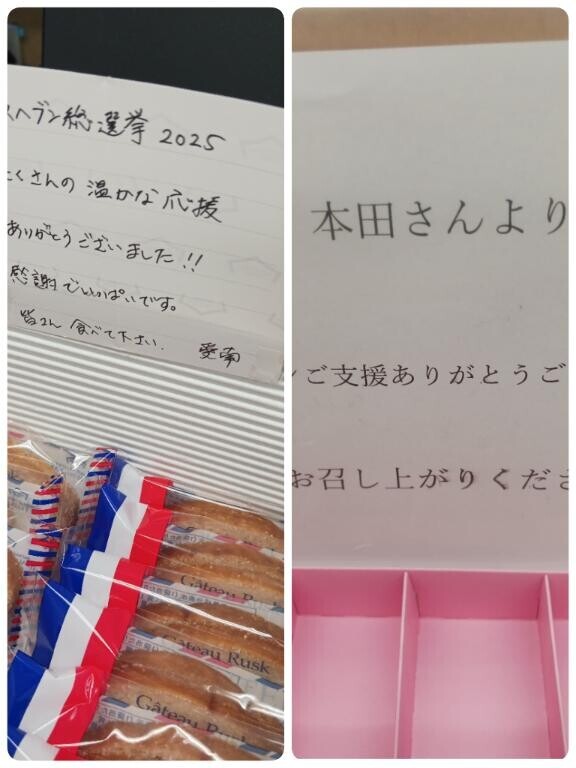 スヘブン総選挙 2025
たくさんの 温かな 応援
ありがとうございました!!
感謝でいっぱいです。
皆さん 食べて下さい.
愛南
Gâteau R
Gâteau Rusk
Gâteau Rusk
本田さんより
ご支援ありがとうご
お召し上がりくださ